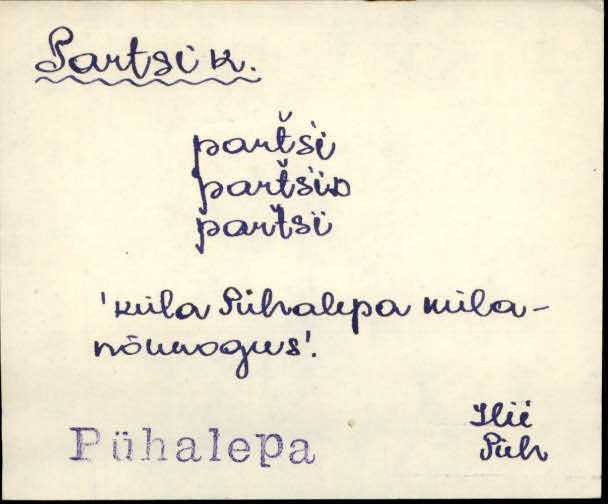 Partsi k.
par̆tsi
par̆tsis
par̆tsi
'küla Pühalepa küla-
nõukogus'.
Pühalepa
Püh